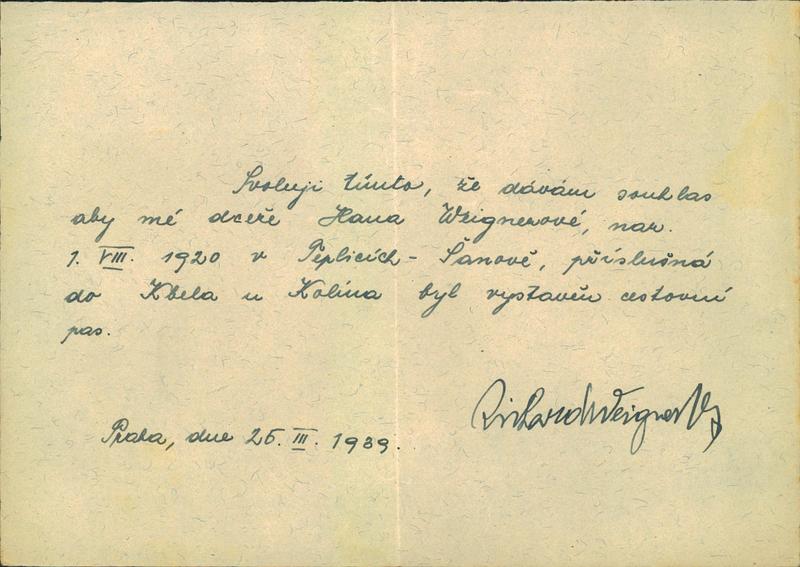 Svoluji tímto, že dávám souhlas
aby mé dceři Hana Weignerové, nar.
1. VIII. 1920 v Teplicích - Šanově, příslušná
do Kbela u Kolína byl vystavěn cestovní
pas.
Richard Weigner
Praha, dne 25. III. 1939.